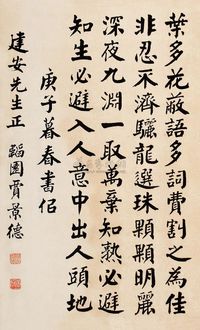 葉多花蔽語多詞費割之為佳
非忍不濟驪龍選珠顆顆明麗
深夜九淵一取萬棄知熟必避
知生必避入人意中出人頭地
庚子暮春書佀
建安先生正 韜園賈景德